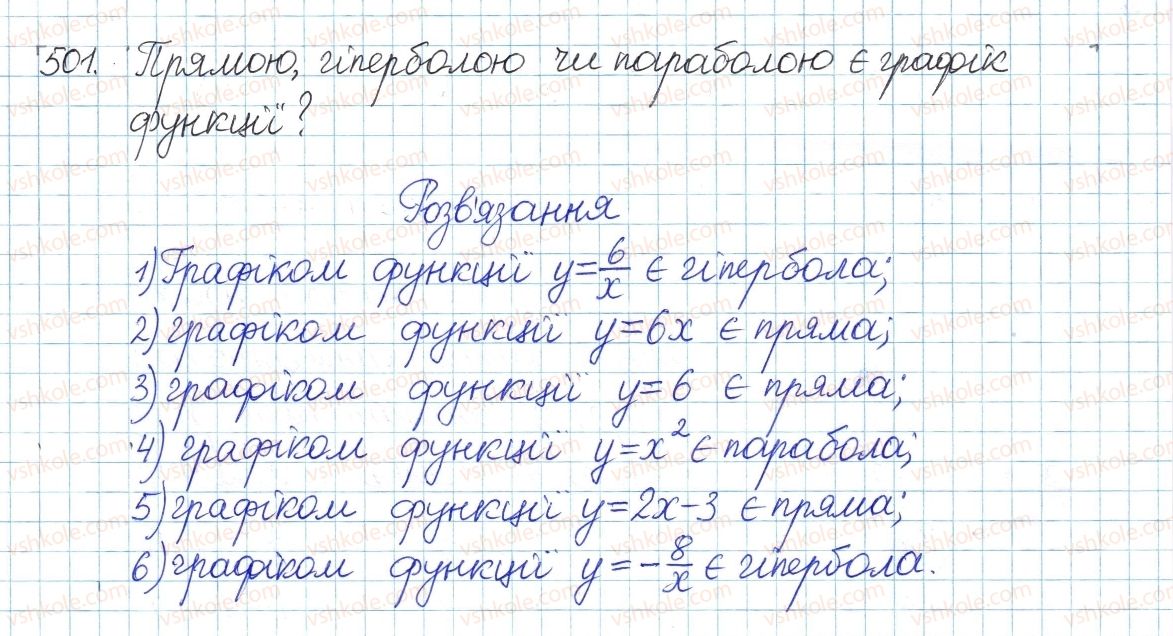 501. Прямою, гіперболою чи параболою є графік
функції?
Розв'язання
1) Графіком функції y=6/x є гіпербола;
2) графіком функції y=6x є пряма;
3) графіком функції y=6 є пряма;
4) графіком функції y=x² є парабола;
5) графіком функції y=2x-3 є пряма;
6) графіком функції y=-8/x є гіпербола.